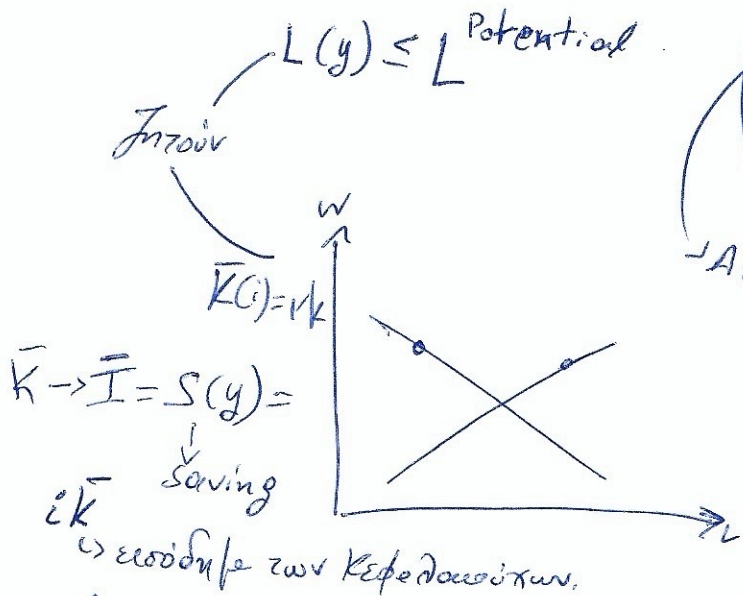 L(y) ≤ L^Potential
Ζητούν
W
K̄(i)=rk
K̄ → Ī = S(y) =
saving
iK̄
↳ εισόδημα των κεφαλαιούχων.
L